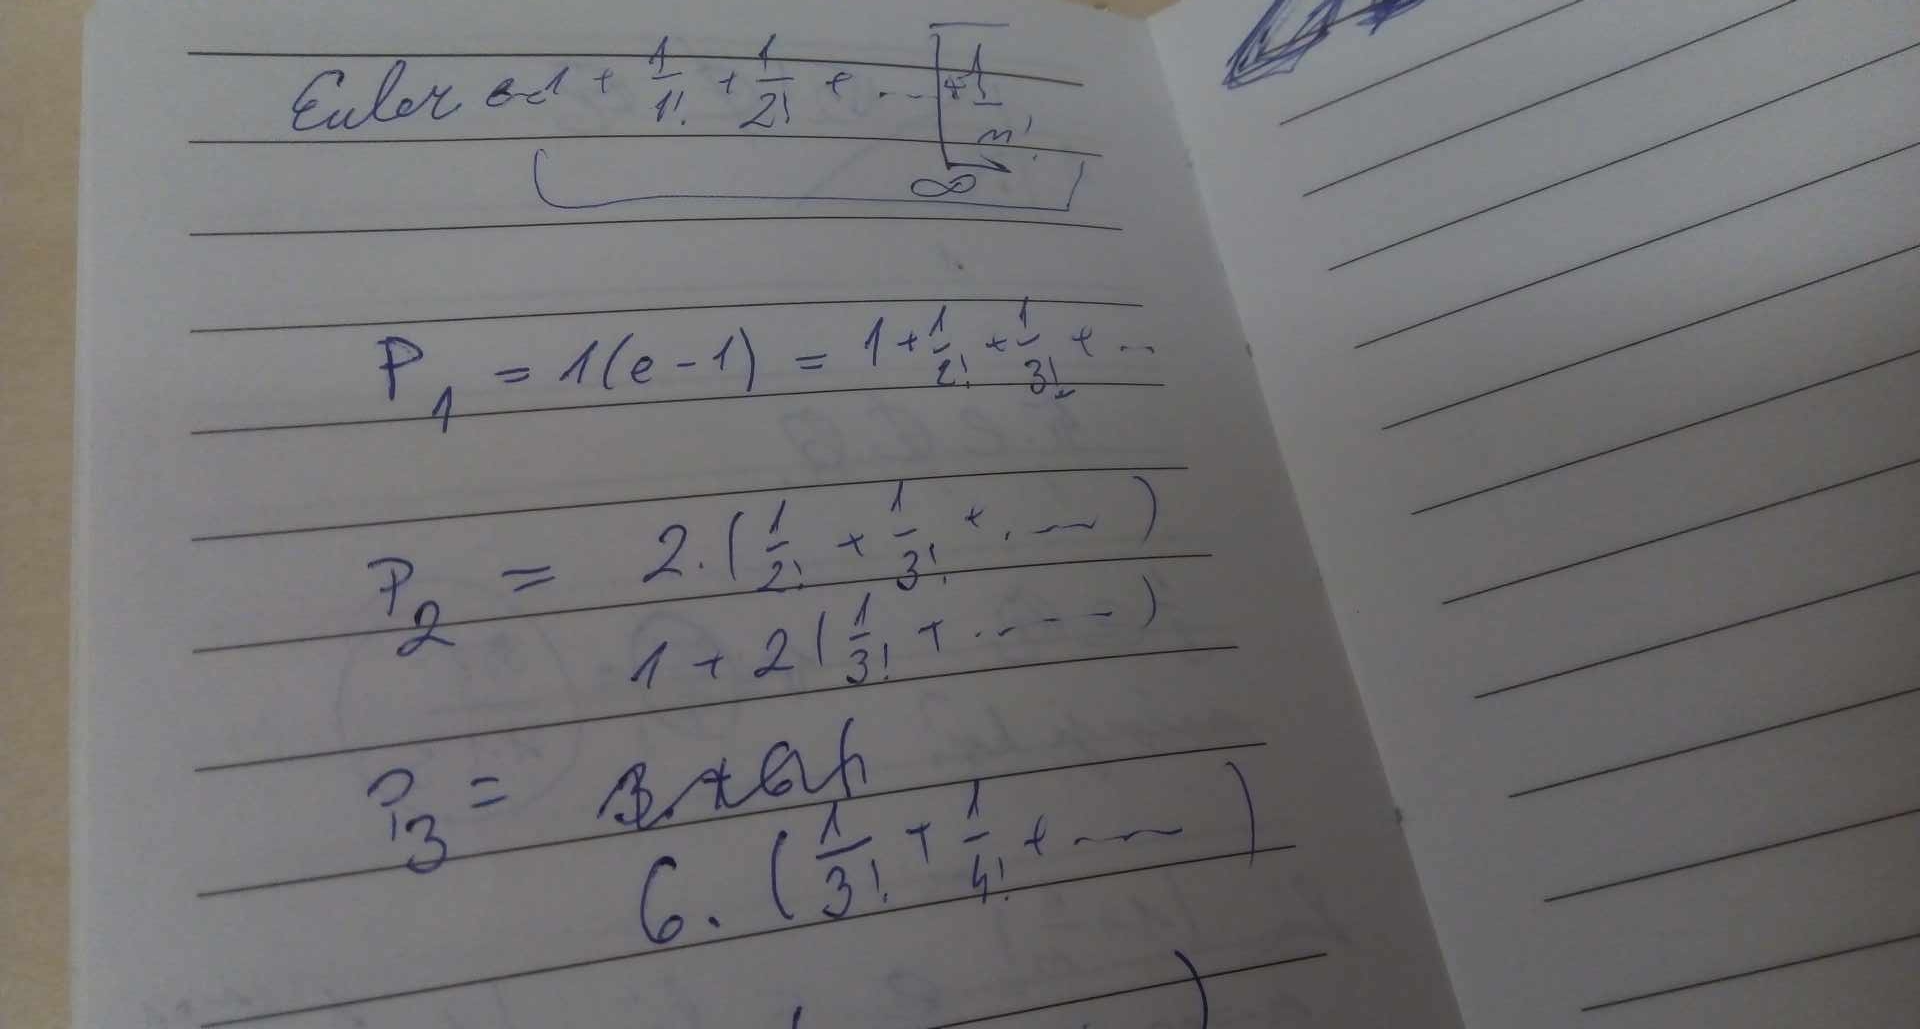 Euler e=1 + 1/1! + 1/2! + ... + 1/n!
∞
P₁ = 1(e-1) = 1 + 1/2! + 1/3! + ...
P₂ = 2.(1/2! + 1/3! + ....)
1 + 2(1/3! + .....)
P₃ =
6.(1/3! + 1/4! + ....)